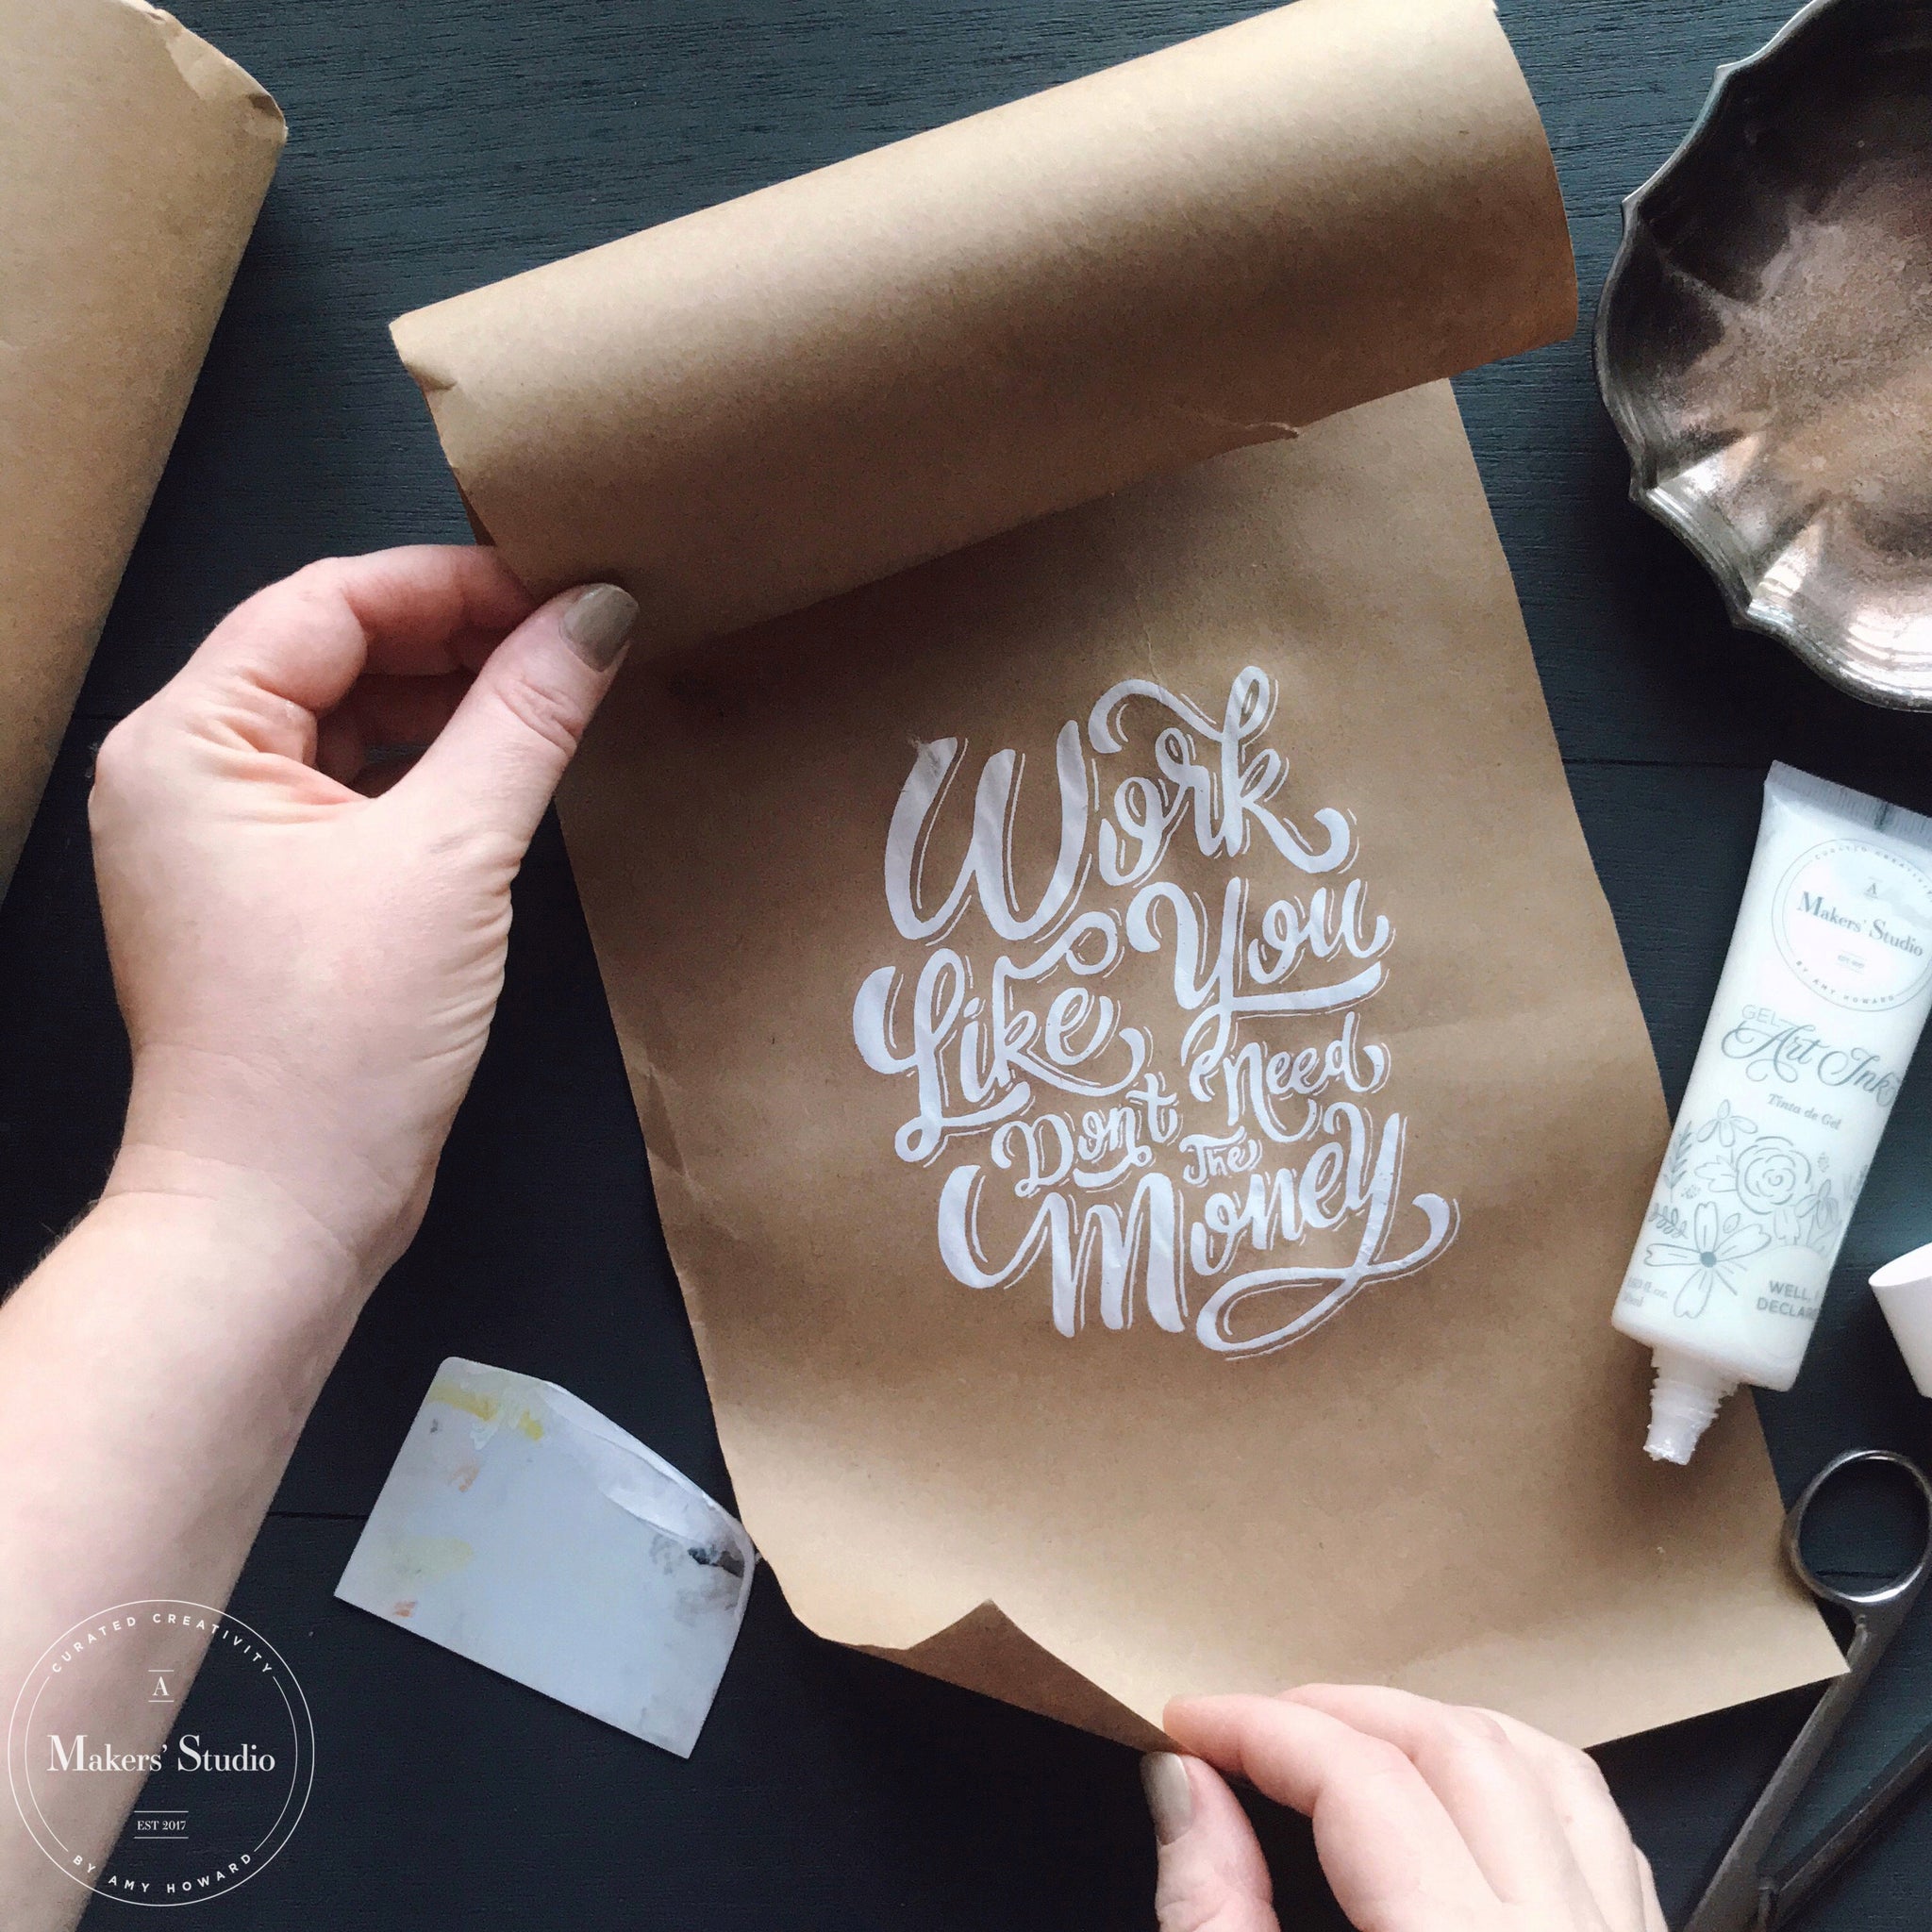 Work
Like You
Dont Need
The
Money
Makers' Studio
BY AMY HOWARD
GEL
Art Ink
Tinta de Gel
WELL, I
DECLARE
CURATED CREATIVITY
A
Makers' Studio
EST 2017
BY AMY HOWARD